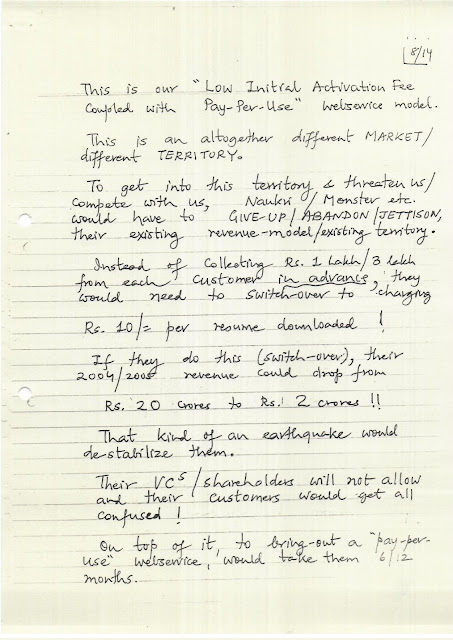 8/14
This is our "Low Initial Activation Fee
Coupled with Pay-Per-Use" webservice model.
This is an altogether different MARKET/
different TERRITORY.
To get into this territory & threaten us/
compete with us, Naukri / Monster etc.
would have to GIVE-UP/ABANDON/JETTISON,
their existing revenue-model/existing territory.
Instead of Collecting Rs. 1 Lakh/3 lakh
from each Customer in advance, they
would need to switch-over to charging
Rs. 10/= per resume downloaded !
If they do this (switch-over), their
2004/2005 revenue could drop from
Rs. 20 Crores to Rs. 2 crores !!
That kind of an earthquake would
de-stabilize them.
Their VCs/shareholders will not allow
and their customers would get all
confused !
On top of it, to bring-out a "pay-per-
use" webservice, would take them 6/12
months.